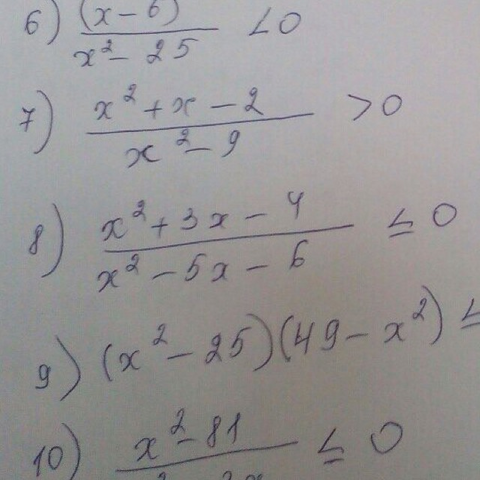 6) (x-6) / (x² - 25) < 0
7) (x² + x - 2) / (x² - 9) > 0
8) (x² + 3x - 4) / (x² - 5x - 6) ≤ 0
9) (x² - 25)(49 - x²) ≤
10) (x² - 81) / ≤ 0